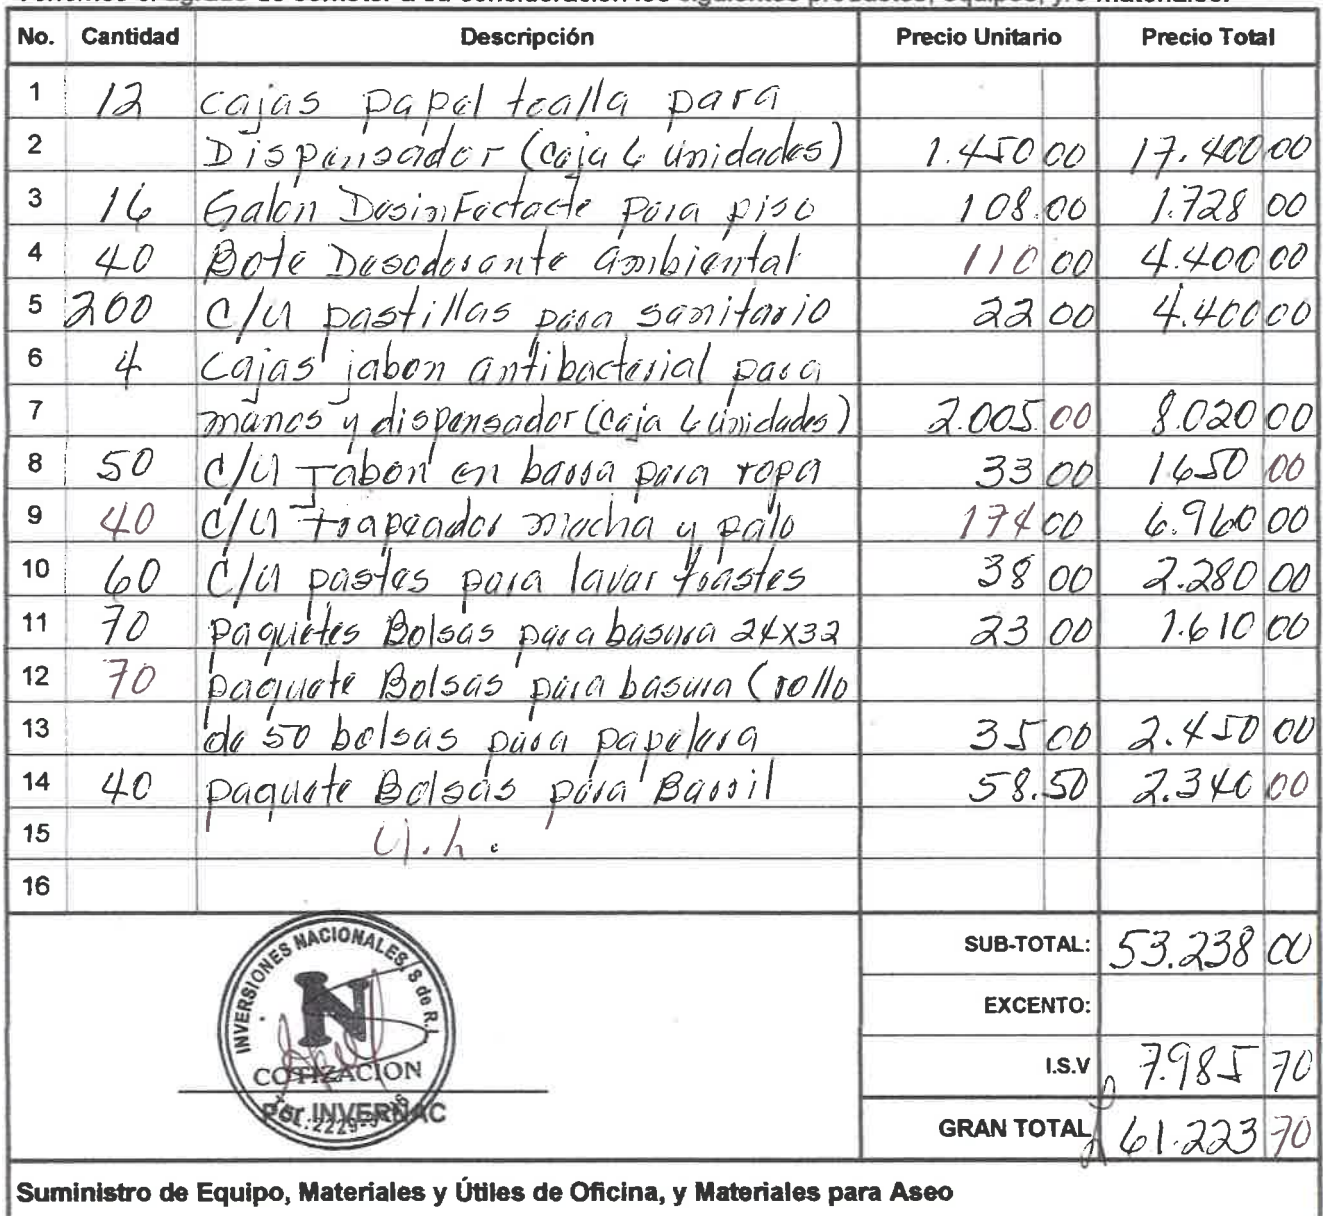 No. Cantidad Descripción Precio Unitario Precio Total
1 12 cajas papel toalla para
2 Dispensador (caja 6 unidades) 1.450 00 17.400 00
3 16 Galon Desinfectacte para piso 108.00 1.728 00
4 40 Bote Desodorante ambiental 110 00 4.400 00
5 200 c/u pastillas para sanitario 22 00 4.400 00
6 4 cajas jabon antibacterial para
7 manos y dispensador (caja 6 unidades) 2.005.00 8.020 00
8 50 c/u Jabon en barra para ropa 33 00 1650 00
9 40 c/u trapeador mecha y palo 174 00 6.960 00
10 60 c/u pastes para lavar trastes 38 00 2.280 00
11 70 paquetes Bolsas para basura 24X32 23 00 1.610 00
12 70 paquete Bolsas para basura (rollo
13 de 50 bolsas para papelera 35 00 2.450 00
14 40 paquete Bolsas para Barril 58.50 2.340 00
15 U.L.
16
SUB-TOTAL: 53.238 00
EXCENTO:
I.S.V 7.985 70
GRAN TOTAL L 61.223 70
INVERSIONES NACIONALES, S de R.L
N
COTIZACION
INVERNAC
Suministro de Equipo, Materiales y Útiles de Oficina, y Materiales para Aseo